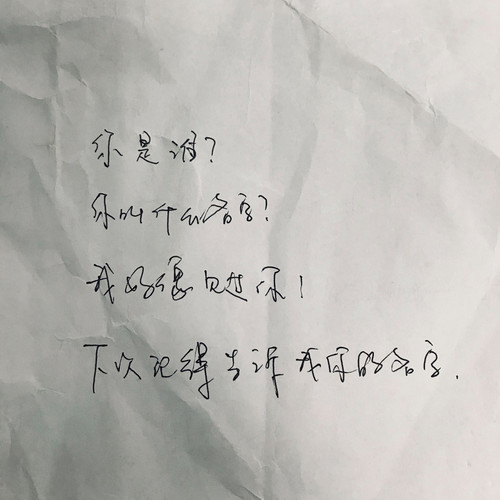 你是谁？
你叫什么名字？
我好像见过你！
下次记得告诉我你的名字.